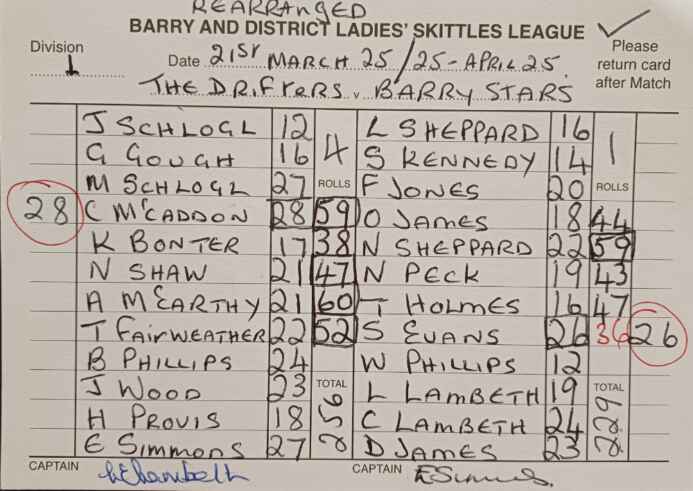 REARRANGED
BARRY AND DISTRICT LADIES' SKITTLES LEAGUE
Division 1
Date 21ST MARCH 25/25-APRIL 25.
Please return card after Match
THE DRIFTERS v BARRY STARS
J SCHLOGL 12 4 L SHEPPARD 16 1
G GOUGH 16 S KENNEDY 14
M SCHLOGL 27 ROLLS F JONES 20 ROLLS
28 C McCADDON 28 59 O JAMES 18 44
K BONTER 17 38 N SHEPPARD 22 59
N SHAW 21 47 N PECK 19 43
A McEARTHY 21 60 T HOLMES 16 47
T FAIRWEATHER 22 52 S EVANS 26 36 26
B PHILLIPS 24 W PHILLIPS 12
J WOOD 23 TOTAL L LAMBETH 19 TOTAL
H PROVIS 18 256 C LAMBETH 24 229
E SIMMONS 27 D JAMES 23
CAPTAIN CAPTAIN